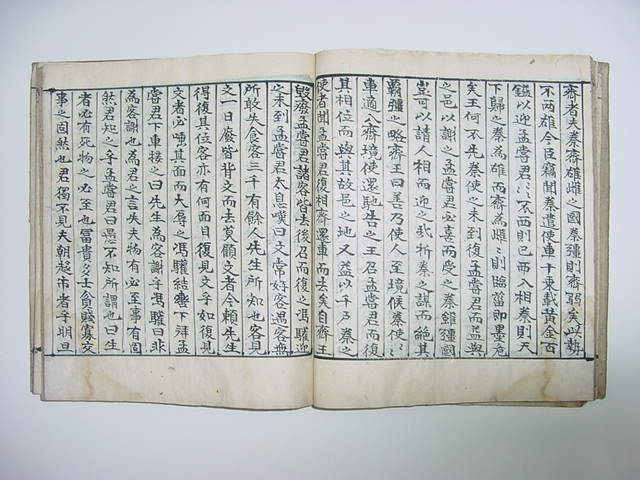 齋者夫秦齋雄雌之國秦彊則齋弱矣此勢
不两雄今臣竊聞秦遣使車十乘載黃金百
鎰以迎孟嘗君〻〻〻不西則已西入相秦則天
下歸之秦為雄而齋為雌〻則臨菑即墨危
矣王何不先秦使之未到復孟嘗君而益與
之邑以謝之孟嘗君必喜而受之秦雖彊國
豈可以請人相而迎之哉折秦之謀而絕其
覇彊之略齋王曰善乃使人至境候秦使〻
車適入齋境使還馳告之王召孟嘗君而復
其相位而與其故邑之地又益以千戶秦之
使者聞孟嘗君復相齋還車而去矣自齋王
毀廢孟嘗君諸客皆去後召而復之馮驩迎
之未到孟嘗君太息嘆曰文常好客遇客無
所敢失食客三千有餘人先生所知也客見
文一日廢皆背文而去莫顧文者今賴先生
得復其位客亦有何面目復見文乎如復見
文者必唾其面而大辱之馮驩結轡下拜孟
嘗君下車接之曰先生為客謝乎馮驩曰非
為客謝也為君之言失夫物有必至事有固
然君知之乎孟嘗君曰愚不知所謂也曰生
者必有死物之必至也冨貴多士貧賤寡交
事之固然也君獨不見夫朝趨市者乎明旦